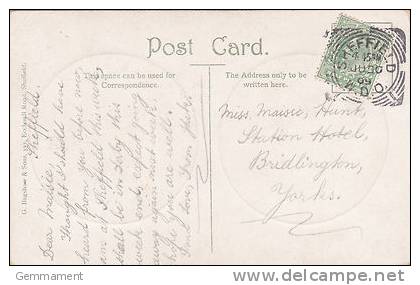 Post Card.
This space can be used for
Correspondence.
The address only to be
written here.
SHEFFIELD
G. Bagshaw & Sons, Rockingham Road, Sheffield.
Sheffield.
Dear Maisie,
Thought I should have
heard from you before now
am at Sheffield this week
shall be in Derby this
week end, expect going
away again next week.
hope you are well.
Fond love, from
Miss. Maisie, Hunt,
Station Hotel,
Bridlington,
Yorks.
Gemmament
delcampe.net